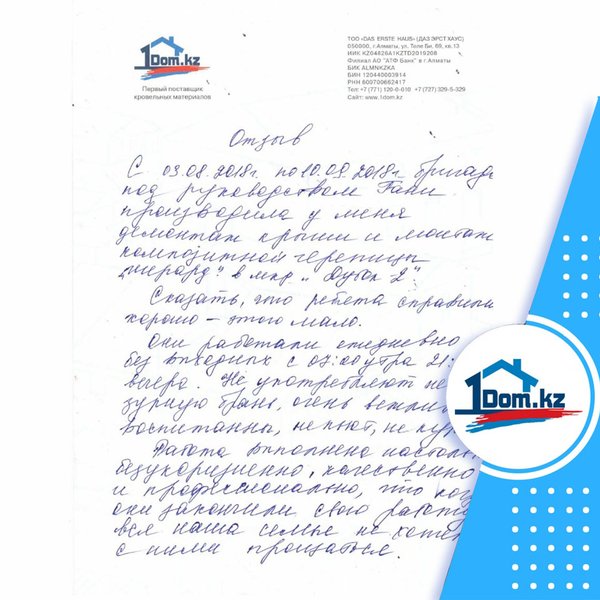 1Dom.kz
Первый поставщик
кровельных материалов
ТОО «DAS ERSTE HAUS» (ДАЗ ЭРСТ ХАУС)
050000, г.Алматы, ул. Теле Би, 69, кв.13
ИИК KZ04826A1KZTD2019208
Филиал АО "АТФ Банк" в г.Алматы
БИК ALMNKZKA
БИН 120440003914
РНН 600700662417
Тел: +7 (771) 120-0-010 +7 (727) 329-5-329
Сайт: www.1dom.kz
Отзыв
С 03.08.2018г. по 10.09.2018г. бригада
под руководством Гани
производила у меня
демонтаж крыши и монтаж
композитной черепицы
в мкр. „Дубок 2"
Сказать, что ребята справили
хорошо – этого мало.
Они работали ежедневно
без выходных с 07:00 утра 21:
вечера. Не употребляют не
зурную брань, очень вежли
воспитанны, не пьют, не ку
Работа выполнена настоль
безукоризненно, качественно
и профессионально, что ког
они закончили свою работу
вся наша семья не хоте
с ними прощаться.
1Dom.kz